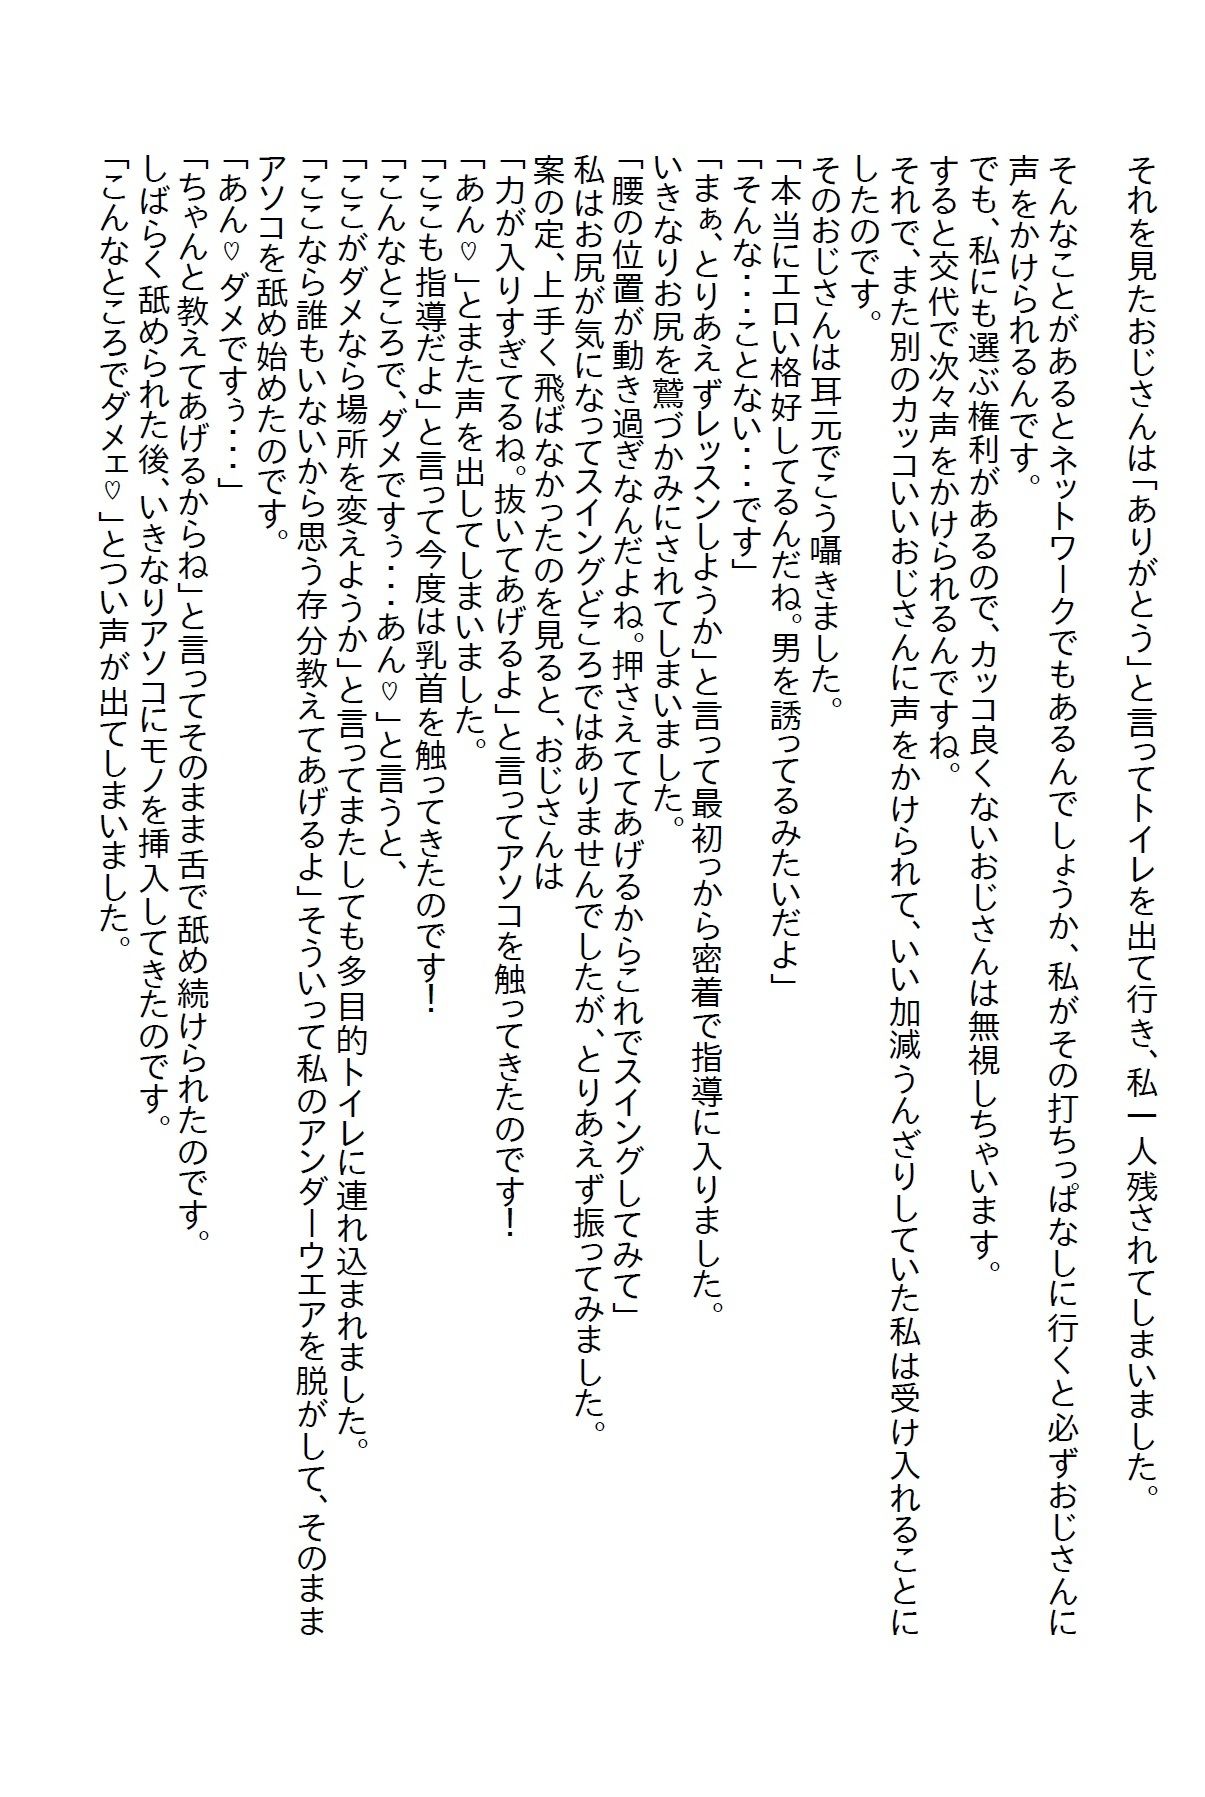 それを見たおじさんは「ありがとう」と言ってトイレを出て行き、私一人残されてしまいました。
そんなことがあるとネットワークでもあるんでしょうか、私がその打ちっぱなしに行くと必ずおじさんに
声をかけられるんです。
でも、私にも選ぶ権利があるので、カッコ良くないおじさんは無視しちゃいます。
すると交代で次々声をかけられるんですね。
それで、また別のカッコいいおじさんに声をかけられて、いい加減うんざりしていた私は受け入れることに
したのです。
そのおじさんは耳元でこう囁きました。
「本当にエロい格好してるんだね。男を誘ってるみたいだよ」
「そんな・・・ことない・・・です」
「まぁ、とりあえずレッスンしようか」と言って最初っから密着で指導に入りました。
いきなりお尻を鷲づかみにされてしまいました。
「腰の位置が動き過ぎなんだよね。押さえててあげるからこれでスイングしてみて」
私はお尻が気になってスイングどころではありませんでしたが、とりあえず振ってみました。
案の定、上手く飛ばなかったのを見ると、おじさんは
「力が入りすぎてるね。抜いてあげるよ」と言ってアソコを触ってきたのです！
「あん♡」とまた声を出してしまいました。
「ここも指導だよ」と言って今度は乳首を触ってきたのです！
「こんなところで、ダメですぅ・・・あん♡」と言うと、
「ここがダメなら場所を変えようか」と言ってまたしても多目的トイレに連れ込まれました。
「ここなら誰もいないから思う存分教えてあげるよ」そういって私のアンダーウエアを脱がして、そのまま
アソコを舐め始めたのです。
「あん♡ダメですぅ・・・」
「ちゃんと教えてあげるからね」と言ってそのまま舌で舐め続けられたのです。
しばらく舐められた後、いきなりアソコにモノを挿入してきたのです。
「こんなところでダメェ♡」とつい声が出てしまいました。